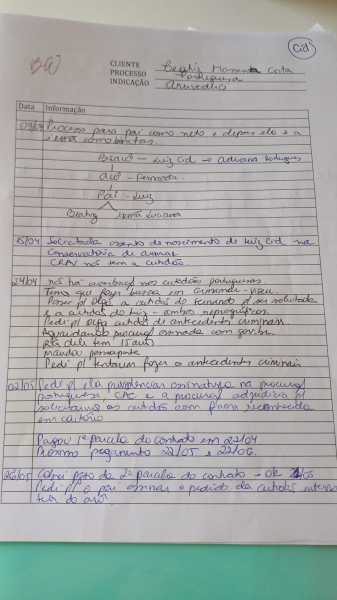 Cid
BW
CLIENTE Beatriz Costa
PROCESSO Portuguesa
INDICAÇÃO
Data Informação
Processo para pai como neto e depois ela e a
irmã como
Bisavô – Luiz Cid → Adriana Rodrigues
avô – Fernando
Pai – Luiz
Beatriz irmã Luciana
15/04 Solicitada assento de nascimento de Luiz Cid na
Conservatória de
CRAV nós tem a certidão.
24/04 nós há nas certidões portuguesas.
Temos que fazer busca em – Viseu
Pedir p/ a certidão do Fernando p/ ser solicitada
e a certidão do Luiz – ambos reprográficas.
Pedir p/ certidão de antecedentes criminais.
Aguardando procuração assinada com
tem 15 anos
Mandou passaporte
Pedi p/ tentarem fazer o antecedentes criminais
02/05 Pedi p/ ela providenciar assinatura na procuração
portuguesa, e a procuração p/
solicitarmos as certidões com firma reconhecida
em cartório
Pagou 1ª parcela do contrato em 22/04
Próximo pagamento 22/05 e 22/06.
Cobrei pgto da 2ª parcela do contrato – OK
Pedi p/ o pai assinar o pedido de certidão inteiro
teor do avô